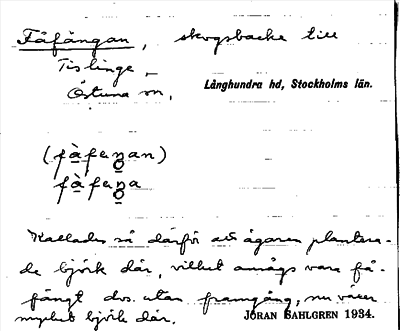 Fåfängan, skogsbacke till
Tislinge,
Östuna sn, Långhundra hd, Stockholms län.
(fàfeŋan)
fàfeŋa
Kallades så därför att ägaren plantera-
de björk där, vilket ansågs vara få-
fängt dvs. utan framgång, nu växer
mycket björk där. JÖRAN SAHLGREN 1934.